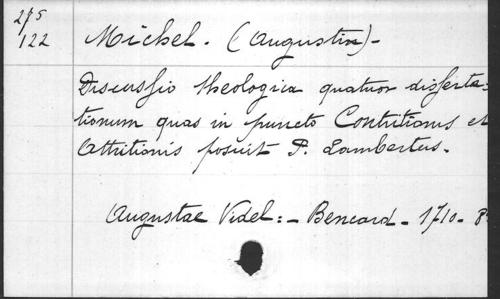 275
122
Michel. (Augustin)-
Discussio theologica quatuor disserta-
tionum quas in puncto Contritionis et
Attritionis posuit P. Lambertus.
Augustae Videl:- Bencard- 1710- 8